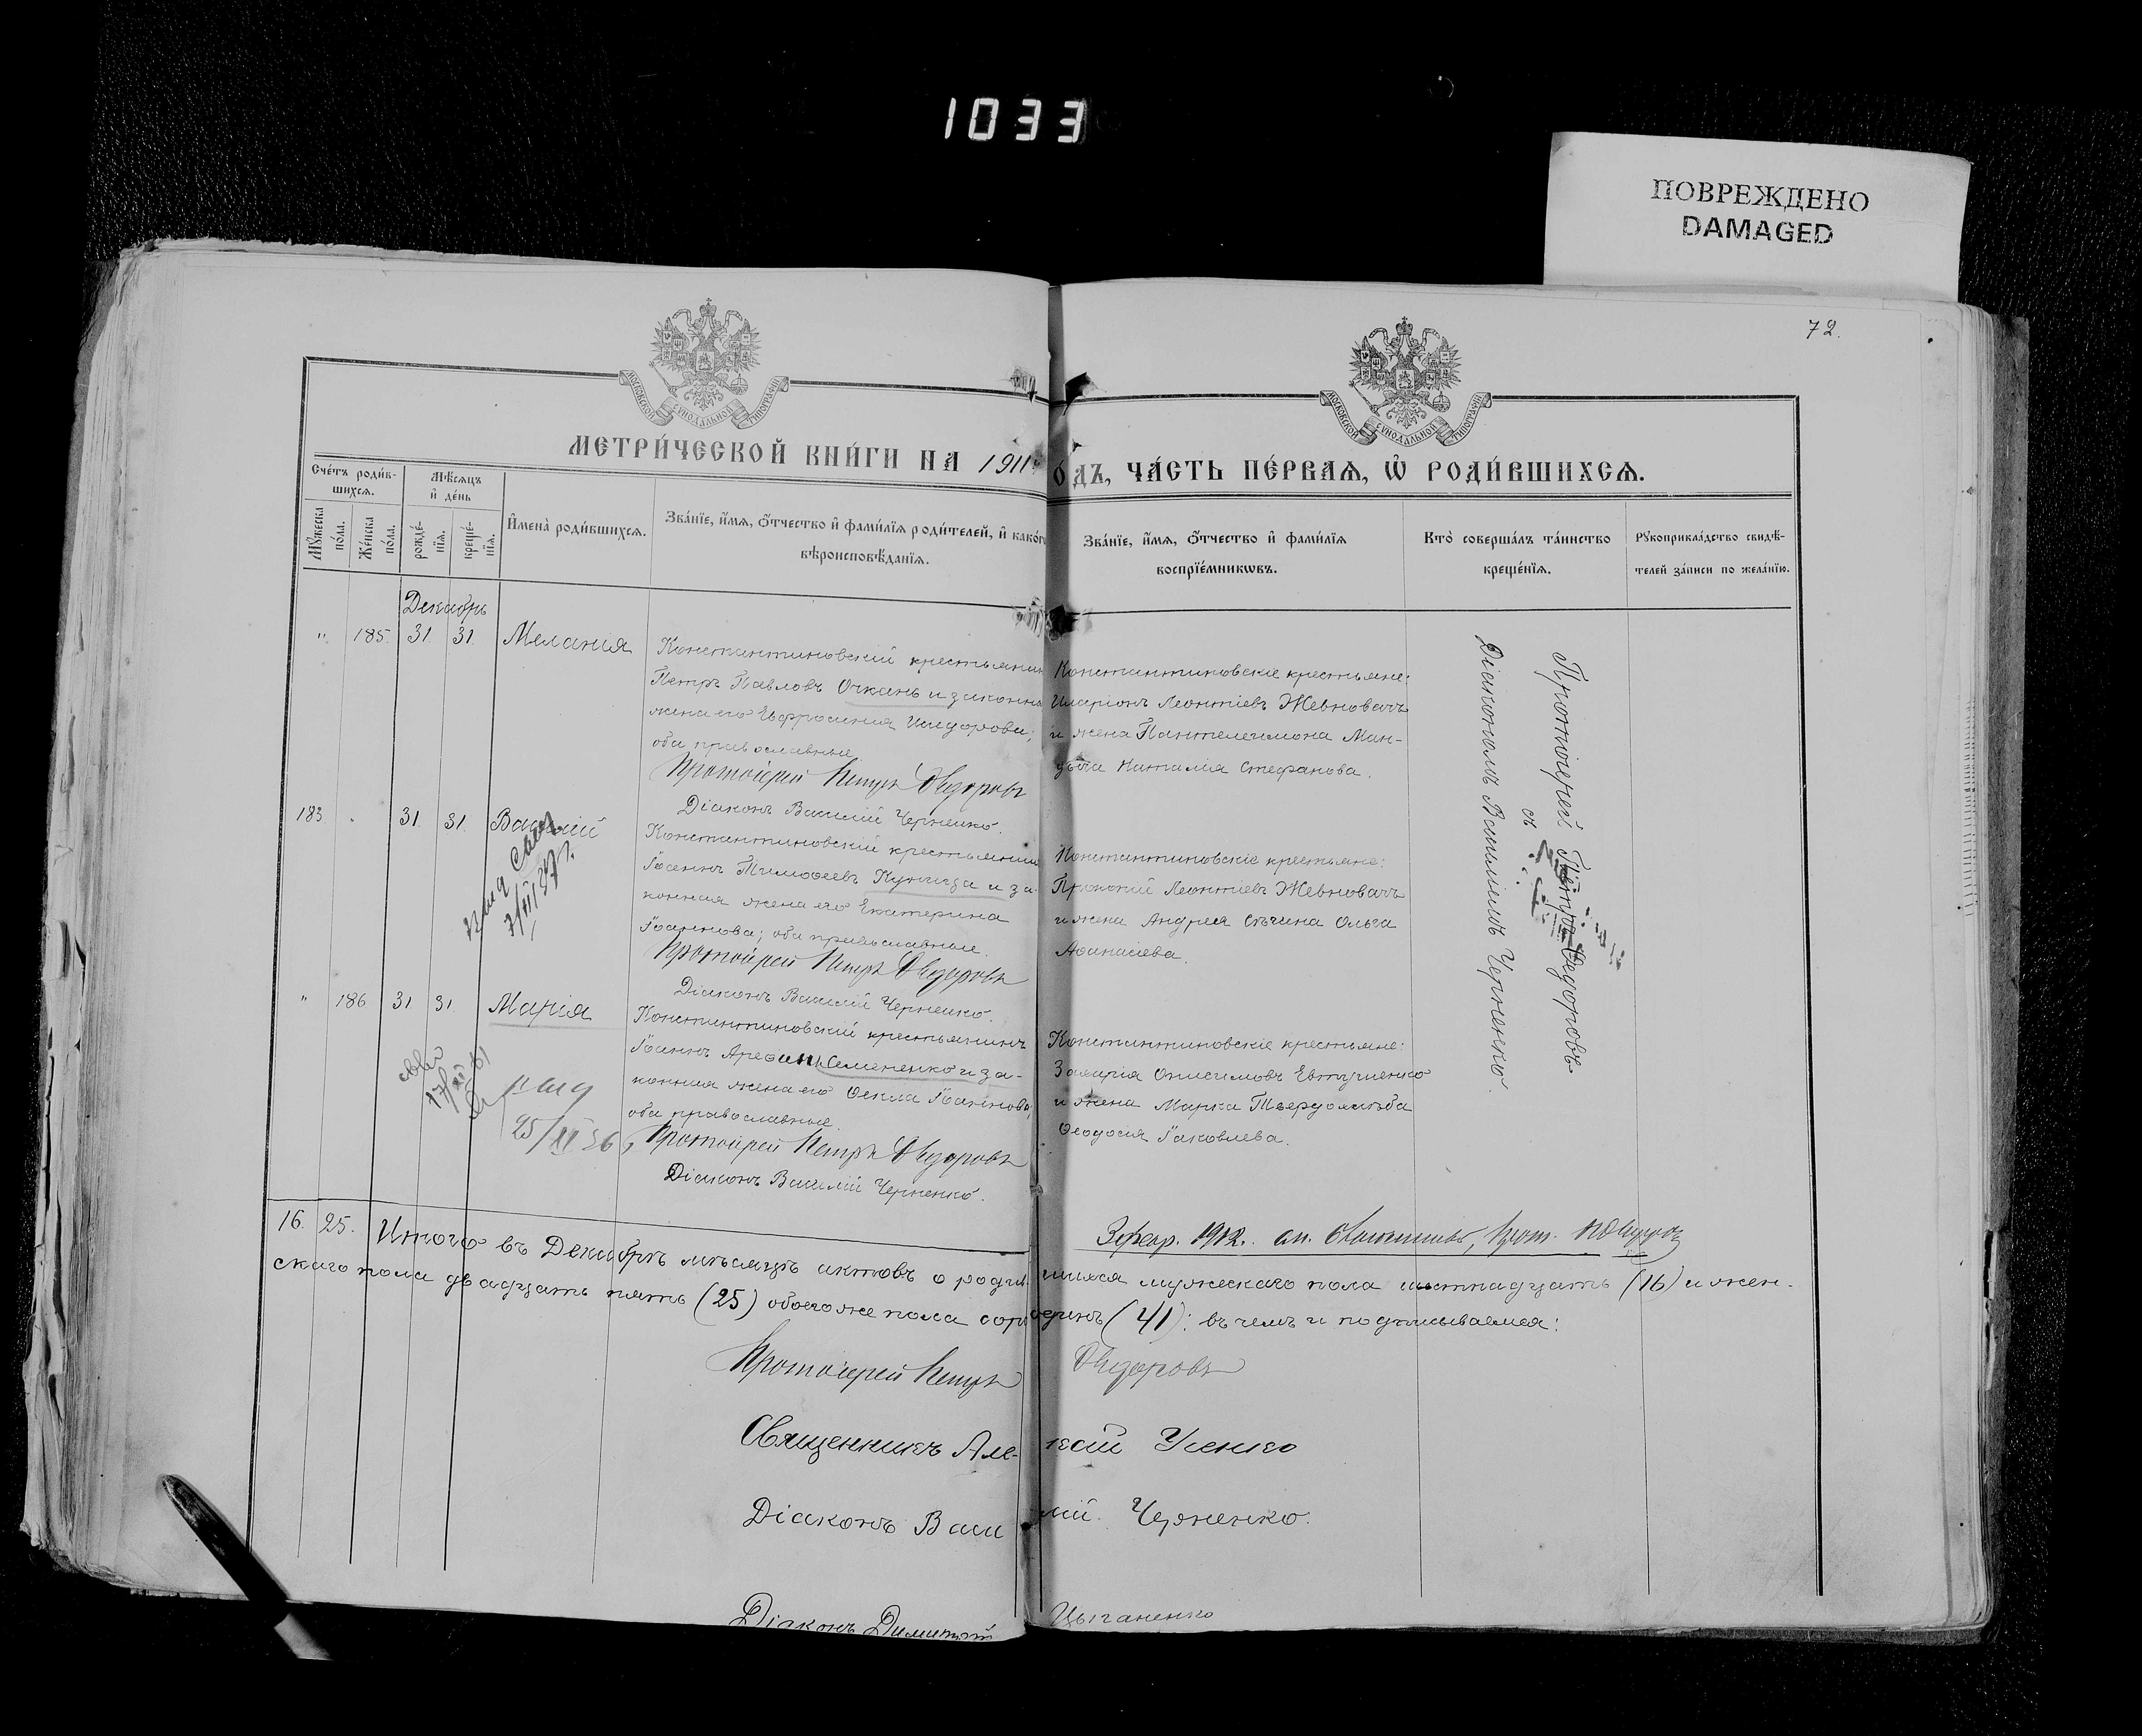 1033
ПОВРЕЖДЕНО
DAMAGED
72.
МОСКОВСКОЙ СУНОДАЛЬНОЙ ТИПОГРАФІИ
МОСКОВСКОЙ СУНОДАЛЬНОЙ ТИПОГРАФІИ
МЕТРИ́ЧЕСКОЙ КНИ́ГИ НА 1911
О́ДЪ, ЧА́СТЬ ПЕ́РВАѦ, Ѡ҆ РОДИ́ВШИХСѦ.
Сче́тъ роди́в-
шихсѧ.
Мꙋ́жеска
по́ла.
Же́нска
по́ла.
Мѣ́сѧцъ
и҆ де́нь
рожде́-
нїѧ.
креще́-
нїѧ.
И҆мена̀ роди́вшихсѧ.
Зва́нїе, и҆́мѧ, ѻ҆́тчество и҆ фами́лїѧ роди́телей, и҆ како́гѡ
вѣроисповѣ́данїѧ.
Зва́нїе, и҆́мѧ, ѻ҆́тчество и҆ фами́лїѧ
воспрїе́мникѡвъ.
Кто̀ соверша́лъ та́инство
креще́нїѧ.
Рꙋкоприкла́дство свидѣ́-
телей за́писи по жела́нїю.
Декабрь
" 185. 31. 31. Меланія
Константиновскій крестьянин
Петръ Павловъ Очкань и законна
жена его Евфросинія Исидорова;
оба православные
Протоіерей Петръ Ѳедоровъ
Діаконъ Василій Черненко.
Константиновскіе крестьяне:
Иларіонъ Леонтіевъ Жевновачъ
и жена Пантелеимона Ман-
Наталія Стефанова.
Протоіерей Петръ Ѳедоровъ
съ
Діакономъ Василіемъ Черненко.
183. 31. 31. Василій
7/II 37г.
Константиновскій крестьянин
Іоаннъ Тимоѳеевъ Куница и за-
конная жена его Екатерина
Іоаннова; оба православные.
Протоіерей Петръ Ѳедоровъ
Діаконъ Василій Черненко.
Константиновскіе крестьяне:
Прокопій Леонтіевъ Жевновачъ
и жена Андрея Сѣчина Ольга
Аѳанасіева.
" 186 31. 31. Марія
17/XI 61
25/II 36
Константиновскій крестьянинъ
Іоаннъ Семененко и за-
конная жена его Ѳекла Іоаннова;
оба православные.
Протоіерей Петръ Ѳедоровъ
Діаконъ Василій Черненко.
Константиновскіе крестьяне:
Захарія Онисимовъ Евтушенко
и жена Марка Твердохлѣба
Ѳеодосія Іаковлева.
16. 25. Итого въ Декабрѣ мѣсяцѣ актовъ о родив шихся мужескаго пола шестнадцать (16) и жен-
скаго пола двадцать пять (25) обоего же пола соро одинъ (41): въ чемъ и подписываемся:
1912.
Протоіерей Петръ Ѳедоровъ
Священникъ Але- ксій Усенко
Діаконъ Васи лій. Черненко.
Діаконъ Димитрій Цыганенко